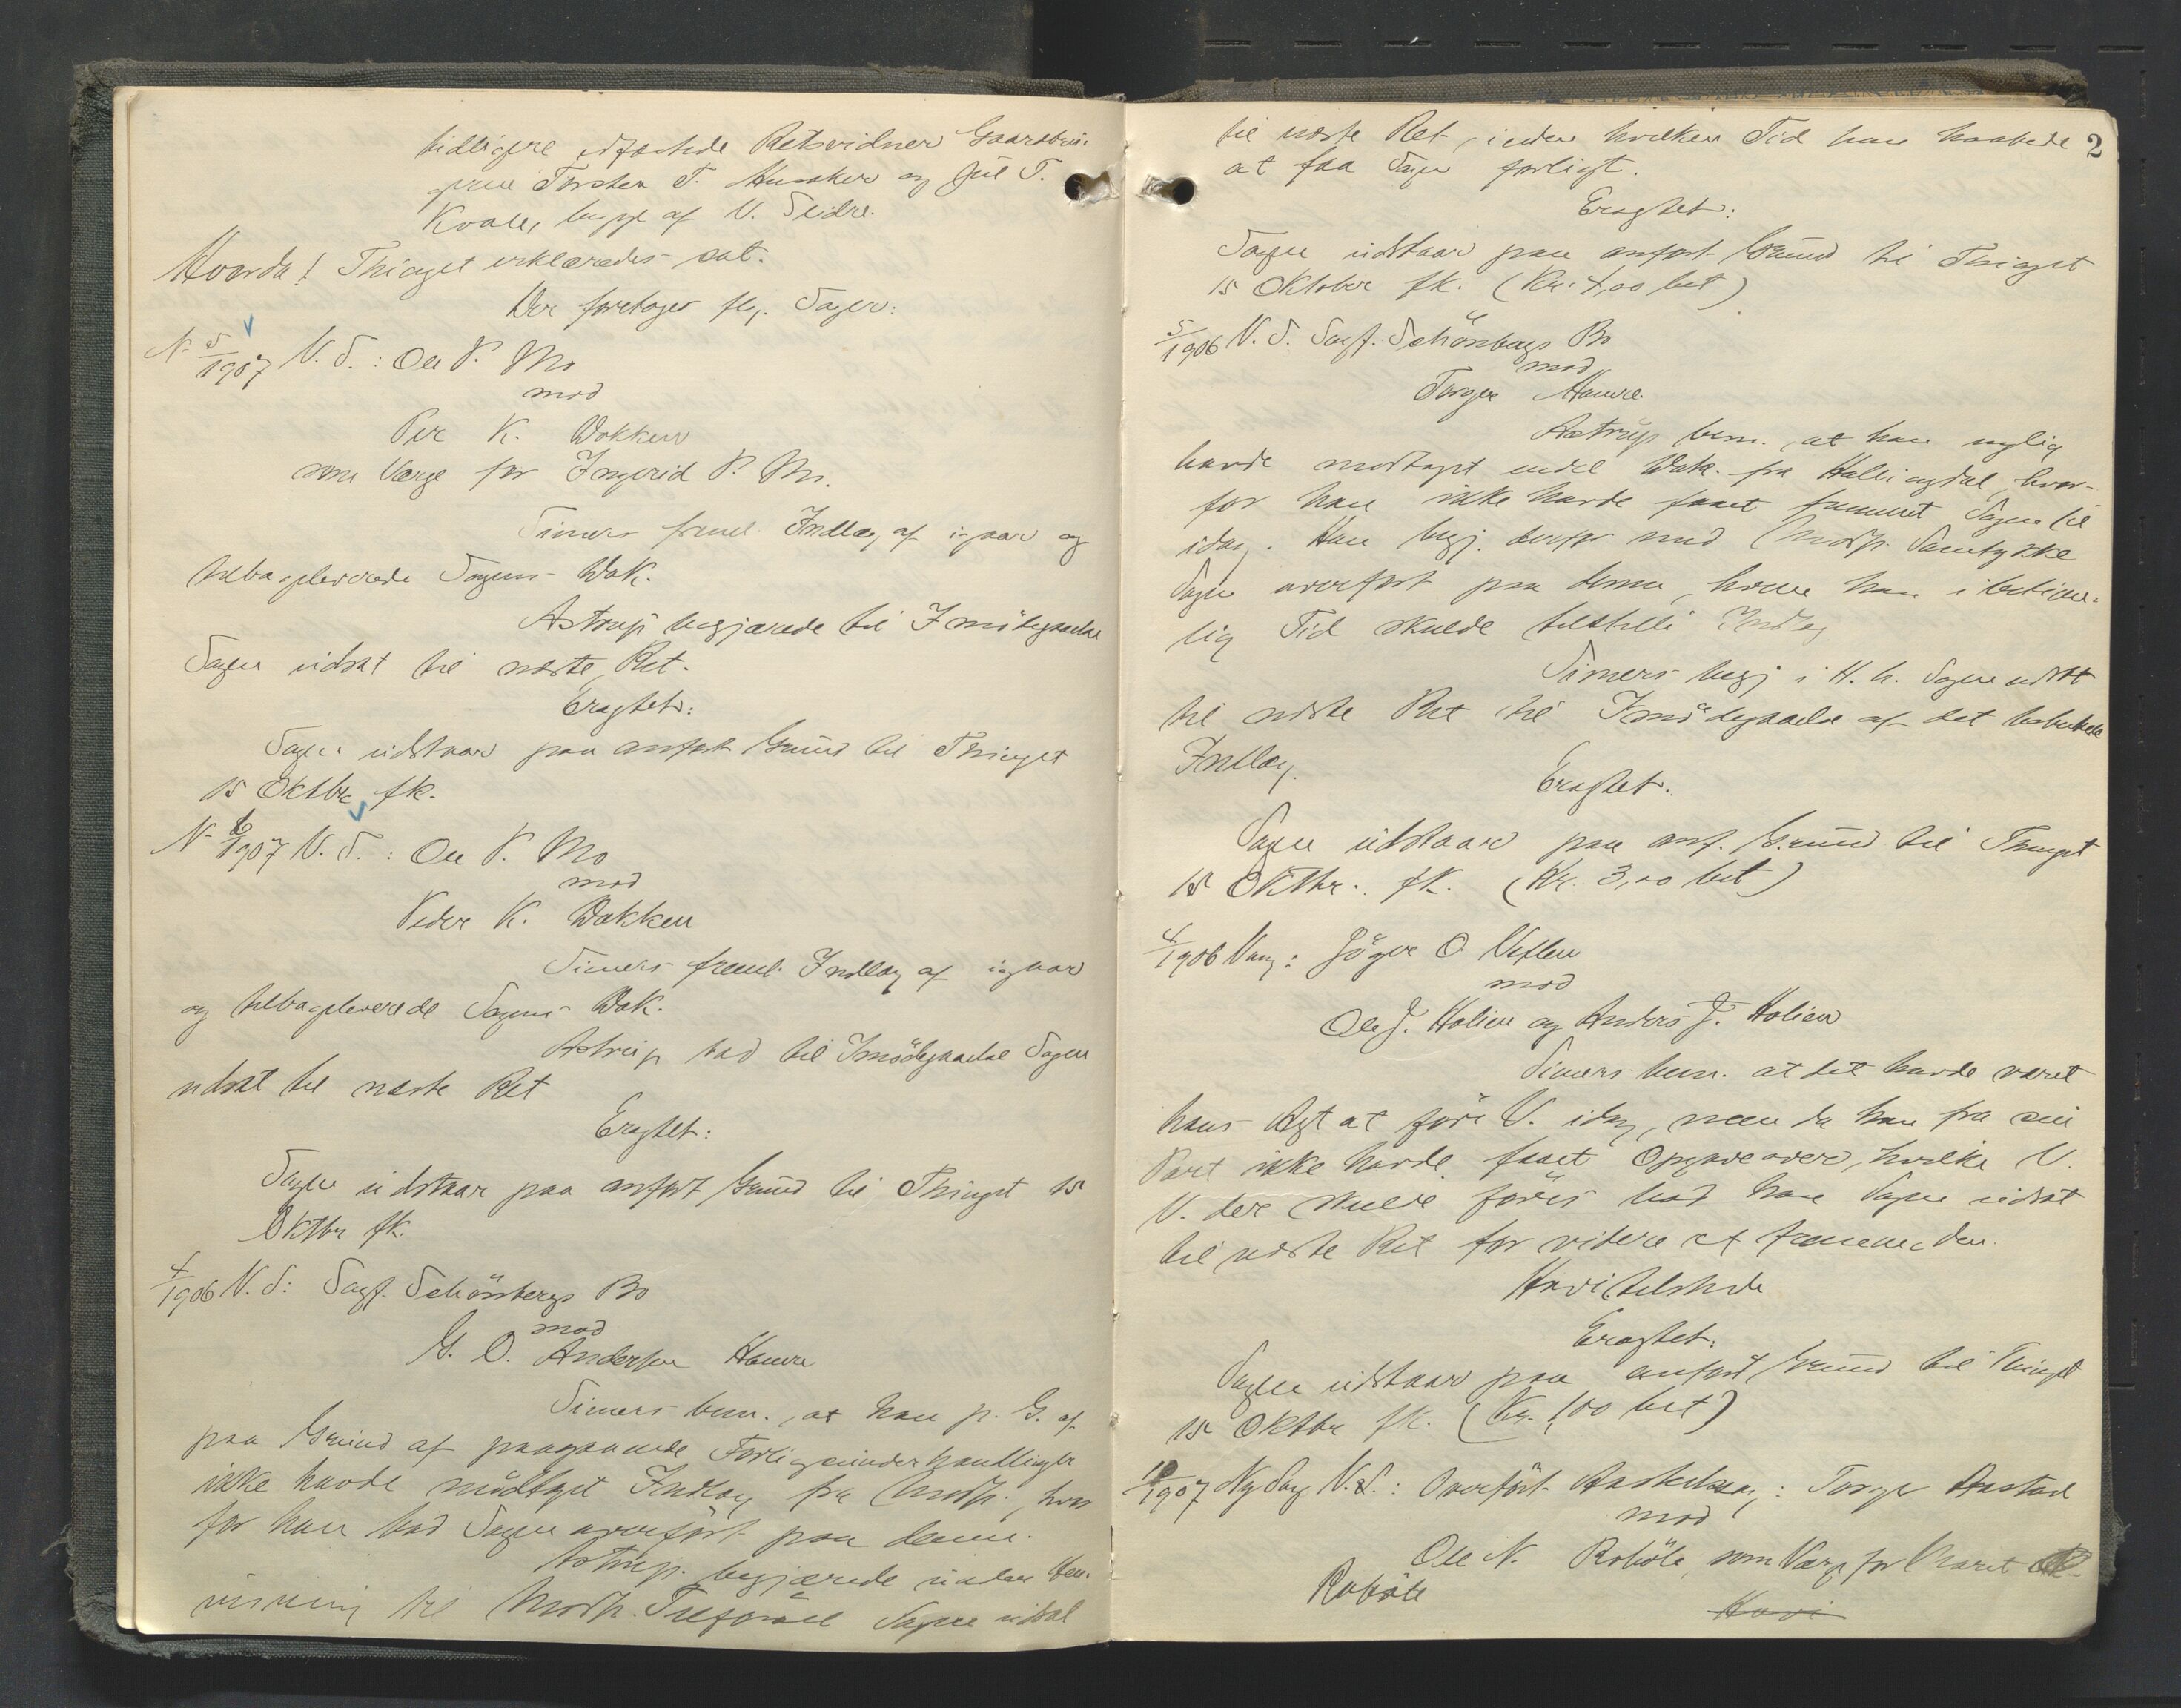 tidligere edfæstede Retsvidner Gaardbru-
gerne Torsten T. Husaker og Jul T.
Kvale, begge af V. Slidre.
Hvorda! Thinget erklæredes sat.
Der foretoges flg. Sager:
N. 5/1907 V. S.: Ole P. Mo
mod
Per K. Dokken
som Værge for Ingerid P. Mo.
Simers freml. Indlæg af igaar og
tilbageleverede Sagens Dok.
Astrup begjærede til Imødegaaelse
Sagen udsat til næste Ret.
Eragtet:
Sagen udstaar paa anført Grund til Thinget
15 Oktbr fk.
N. 6/1907 V. S.: Ole P. Mo
mod
Peder K. Dokken
Simers freml. Indlæg af igaar
og tilbageleverede Sagens Dok.
Astrup bad til Imødegaaelse Sagen
udsat til næste Ret
Eragtet:
Sagen udstaar paa anført Grund til Thinget 15
Oktbr fk.
4/1906 V. S: Sagf. Schönbergs Bo
mod
G. O. Andersen Hamre
Simers bem., at han p. G. af
paa Grund af paagaaende Forligsunderhandlinger
ikke havde modtaget Indlæg fra Modp., hvor
for han bad Sagen overført paa denne.
Astrup begjærede under Hen-
visning til Modp. Tilførsel Sagen udsat
2
til næste Ret, inden hvilken Tid han haabede
at faa Sagen forligt.
Eragtet:
Sagen udstaar paa anført Grund til Thinget
15 Oktober fk. (Kr. 4,00 bet)
5/1906 V. S. Sagf. Schönbergs Bo
mod
Torger Hamre.
Astrup bem., at han nylig
havde modtaget endel Dok. fra Hallingdal, hvor-
for han ikke havde faaet fremmet Sagen til
idag. Han begj. derfor med Modp. Samtykke
Sagen overført paa denne, hvem han i betime-
lig Tid skulde tilstille Indlæg
Simers begj i H. h. Sagen udsat
til næste Ret til Imødegaaelse af det bebudede
Indlæg.
Eragtet.
Sagen udstaar paa anf. Grund til Thinget
15 Oktbr. fk. (Kr. 3,00 bet)
4/1906 Vang: Jøger O. Veflen
mod
Ole J. Holien og Anders J. Holien
Simers bem. at det havde været
hans Agt at føre V. idag, men da han fra sin
Part ikke havde faaet Opgave over, hvilke V.
V. der skulde føres bad han Sagen udsat
til næste Ret for videre at fremme den.
Havistilstede
Eragtet:
Sagen udstaar paa anført Grund til Thinget
15 Oktbr fk. (Kr. 1,00 bet)
10/1907 Ny Sag V. S.: Overført : Torger Aastad
mod
Ole N. Robøle, som Værge for Marit
Robøle
Havi